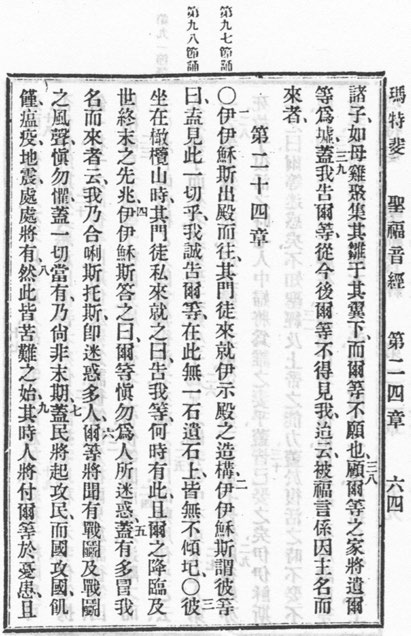 瑪特斐 聖福音經 第二四章 六四
第九七節誦
第九八節誦
諸子、如母雞聚集其雛于其翼下、而爾等不願也、三八顧爾等之家將遺爾
等爲墟、三九蓋我告爾等、從今後爾等不得見我、迨云、被福言係因主名而
來者、
第二十四章
○伊伊穌斯出殿而往、其門徒來就伊示殿之造構、二伊伊穌斯謂彼等
曰、盍見此一切乎、我誠告爾等、在此無一石遺石上、皆無不傾圮、○三彼
坐在橄欖山時、其門徒私來就之曰、告我等何時有此、且爾之降臨及
世終末之先兆、四伊伊穌斯答之曰、爾等慎勿爲人所迷惑、五蓋有多冒我
名而來者、云我乃合唎斯托斯、卽迷惑多人、六爾等將聞有戰鬬及戰鬬
之風聲、慎勿懼、蓋一切當有、乃尙非末期、七蓋民將起攻民、而國攻國、飢
饉、瘟疫、地震、處處將有、八然此皆苦難之始、九其時人將付爾等於憂患、且